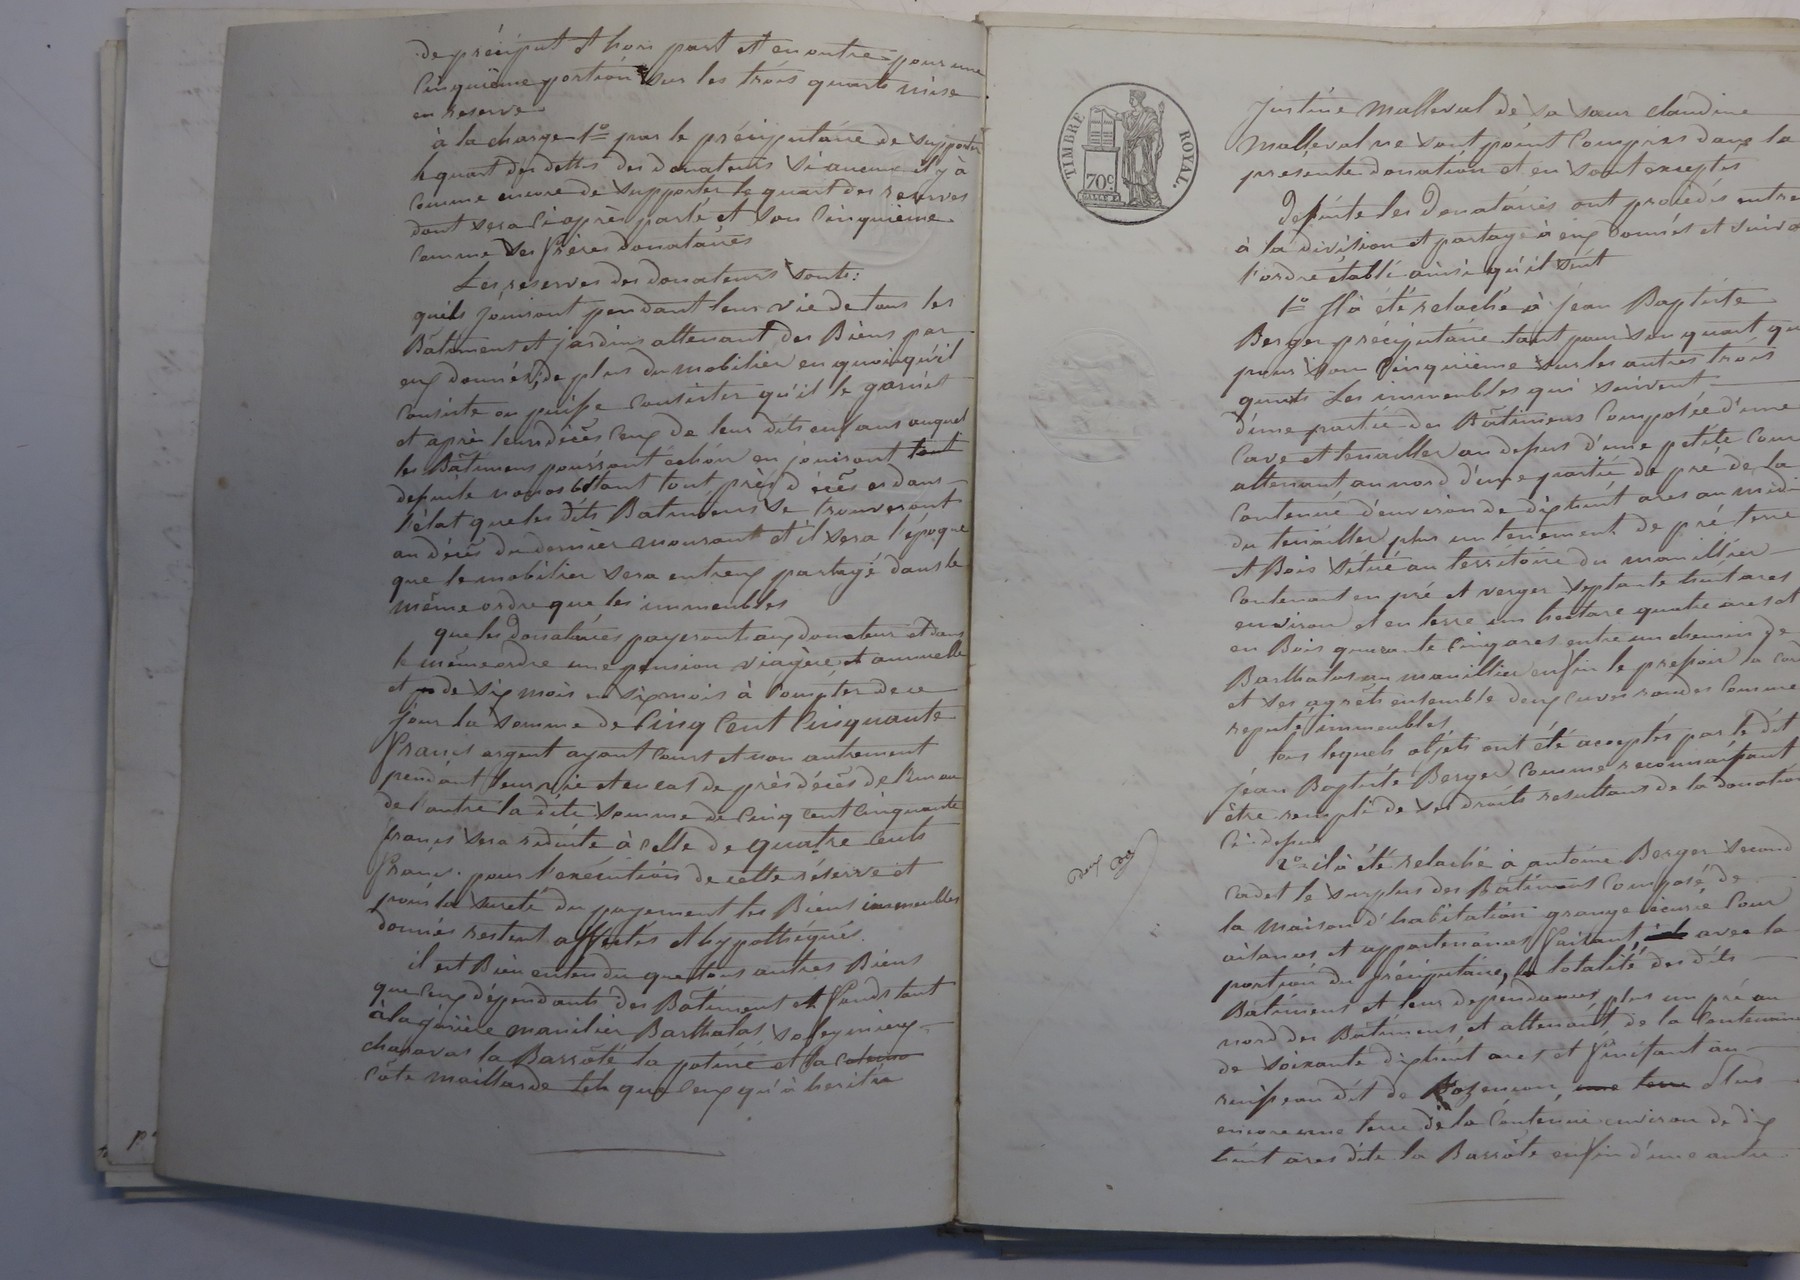 de préciput et hors part et en outre pour une
Cinquième portion sur les trois quarts mise
en reserve
à la charge 1º par le préciputaire de supporter
le quart des dettes des donateurs si aucune il y à
Comme encore de supporter le quart des reserves
dont sera Ci après parlé et son Cinquième
Comme ses frères donataires
Les reserves des donateurs sont:
qu'ils Jouiront pendant leur vie de tous les
Bâtiments et jardins attenant des Biens par
eux donnés, de plus du mobilier en quoi qu'il
Consiste ou puisse Consister qu'il le garnit
et après leurs décès Ceux de leur dits enfans auquel
les Bâtimens pourront échoir en jouiront
de suite nonobstant tout près décès et dans
l'état que les dits Batimens se trouveront
au décès du dernier mourant et il sera l'époque
que le mobilier sera entreux partagé dans le
même ordre que les immeubles
que les Donataires payeront aux donateur et dans
le même ordre une pension viagère et annuelle
et de six mois en six mois à Compter de ce
jour la Somme de Cinq Cent Cinquante
francs argent ayant Cours et non autrement
pendant leur vie et en cas de près décès de l'un ou
de l'autre la dite Somme de Cinq Cent Cinquante
francs sera réduite à celle de quatre Cents
francs. pour l'exécution de cette réserve et
pour la sureté du payement les Biens immeubles
donnés restent affectés et hypothéqués.
il est Bien entendu que tous autres Biens
que Ceux dépendants des Bâtiment et fonds tant
à la manilier Barthalas,
charavas la Barrôte la et la
Côte maillarde tels que Ceux qu'à heritée
TIMBRE ROYAL.
70c
Justine Malleval de sa sœur Claudine
Malleval ne sont point Compris dans la
présente donation et en sont exceptés
De suite les Donataires ont procédés entre
à la division et partage à eux donnés et suivant
l'ordre établi ainsi qu'il suit
1º Il à été relaché à Jean Baptiste
Berger préciputaire tant pour son quart que
pour son Cinquième sur les autres trois
quarts les immeubles qui suivent
d'une partie des Bâtimens Composée d'une
Cave et tenailler au dessus d'une petite Cour
attenant au nord d'une partie de pré de la
Contenue d'environ de dix huit ares au midi
du tenailler plus un tenement de pré terre
et Bois situé au territoire du manillier
Contenant en pré et verger septante huit ares
environ et en terre un hectare quatre ares et
en Bois quarante Cinq ares entre un chemin de
Barthalas au manillier enfin le pressoir la
et ses agrêts ensemble deux Cuves rondes Comme
reputé immeubles
tous lequels objets ont été acceptés par le dit
jean Baptiste Berger Comme reconnaissant
être rempli de ses droits resultans de la donation
Ci-dessus
2º il à été relaché à antoine Berger second
cadet le surplus des Bâtimens Composé de
la maison d'habitation grange écurie Cour
aisances et appartenances faisant avec la
portion du préciputaire, la totalité des dits
Batimens et leur dependances, plus un pré au
nord des Batimens et attenant, de la Contenue
de soixante dix huit ares et finitant au
ruisseau dit de Plus
encore une terre de la Contenue environ de dix
huit ares dite la Barrôte enfin d'une autre